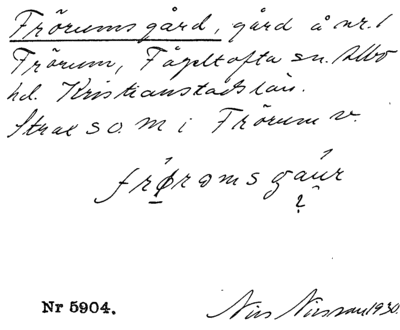 Frörumsgård, gård å nr. 1
Frörum, Fågeltofta sn. Albo
hd. Kristianstads län.
Strax s o. m i Frörum v.
frørømsgáur
?
Nr 5904.
Nils Nilsson 1930.